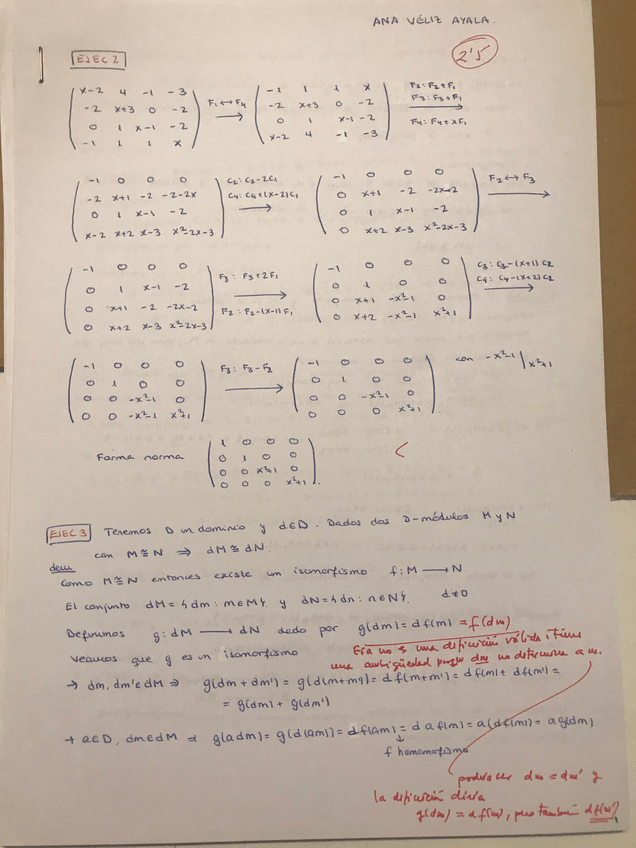 ANA VÉLIZ AYALA.
EJEC 2
2'5
x-2 4 -1 -3
-2 x+3 0 -2
0 1 x-1 -2
-1 1 1 x
F1↔F4
-1 1 1 x
-2 x+3 0 -2
0 1 x-1 -2
x-2 4 -1 -3
F2: F2+F1
F3: F3+F1
F4: F4+xF1
-1 0 0 0
-2 x+1 -2 -2-2x
0 1 x-1 -2
x-2 x+2 x-3 x²-2x-3
C2: C2-2C1
C4: C4+(x-2)C1
-1 0 0 0
0 x+1 -2 -2x-2
0 1 x-1 -2
0 x+2 x-3 x²-2x-3
F2↔F3
-1 0 0 0
0 1 x-1 -2
0 x+1 -2 -2x-2
0 x+2 x-3 x²-2x-3
F3: F3+2F1
F2: F2-(x-1)F1
-1 0 0 0
0 1 0 0
0 x+1 -x²-1 0
0 x+2 -x²-1 x²+1
C3: C3-(x+1)C2
C4: C4-(x+2)C2
-1 0 0 0
0 1 0 0
0 0 -x²-1 0
0 0 -x²-1 x²+1
F3: F3-F2
-1 0 0 0
0 1 0 0
0 0 -x²-1 0
0 0 0 x²+1
con -x²-1 | x²+1
Forma norma
1 0 0 0
0 1 0 0
0 0 x²+1 0
0 0 0 x²+1
EJEC 3 Tenemos D un dominio y d∈D. Dados dos D-módulos M y N
con M≅N ⇒ dM≅dN.
dem
Como M≅N entonces existe un isomorfismo f: M → N
El conjunto dM={dm: m∈M} y dN={dn: n∈N}. d≠0
Definimos g: dM → dN dado por g(dm)=df(m)=f(dm)
Esta no es una definición válida: tiene
Veamos que g es un isomorfismo
una ambigüedad porque dm no determina a m.
→ dm, dm'∈dM ⇒ g(dm+dm')=g(d(m+m'))=df(m+m')=df(m)+df(m')=
=g(dm)+g(dm')
→ a∈D, dm∈dM ⇒ g(adm)=g(d(am))=df(am)=daf(m)=a(df(m))=ag(dm)
f homomorfismo
podría ser dm=dm' y
la definición diría
g(dm)=df(m), pero también df(m')